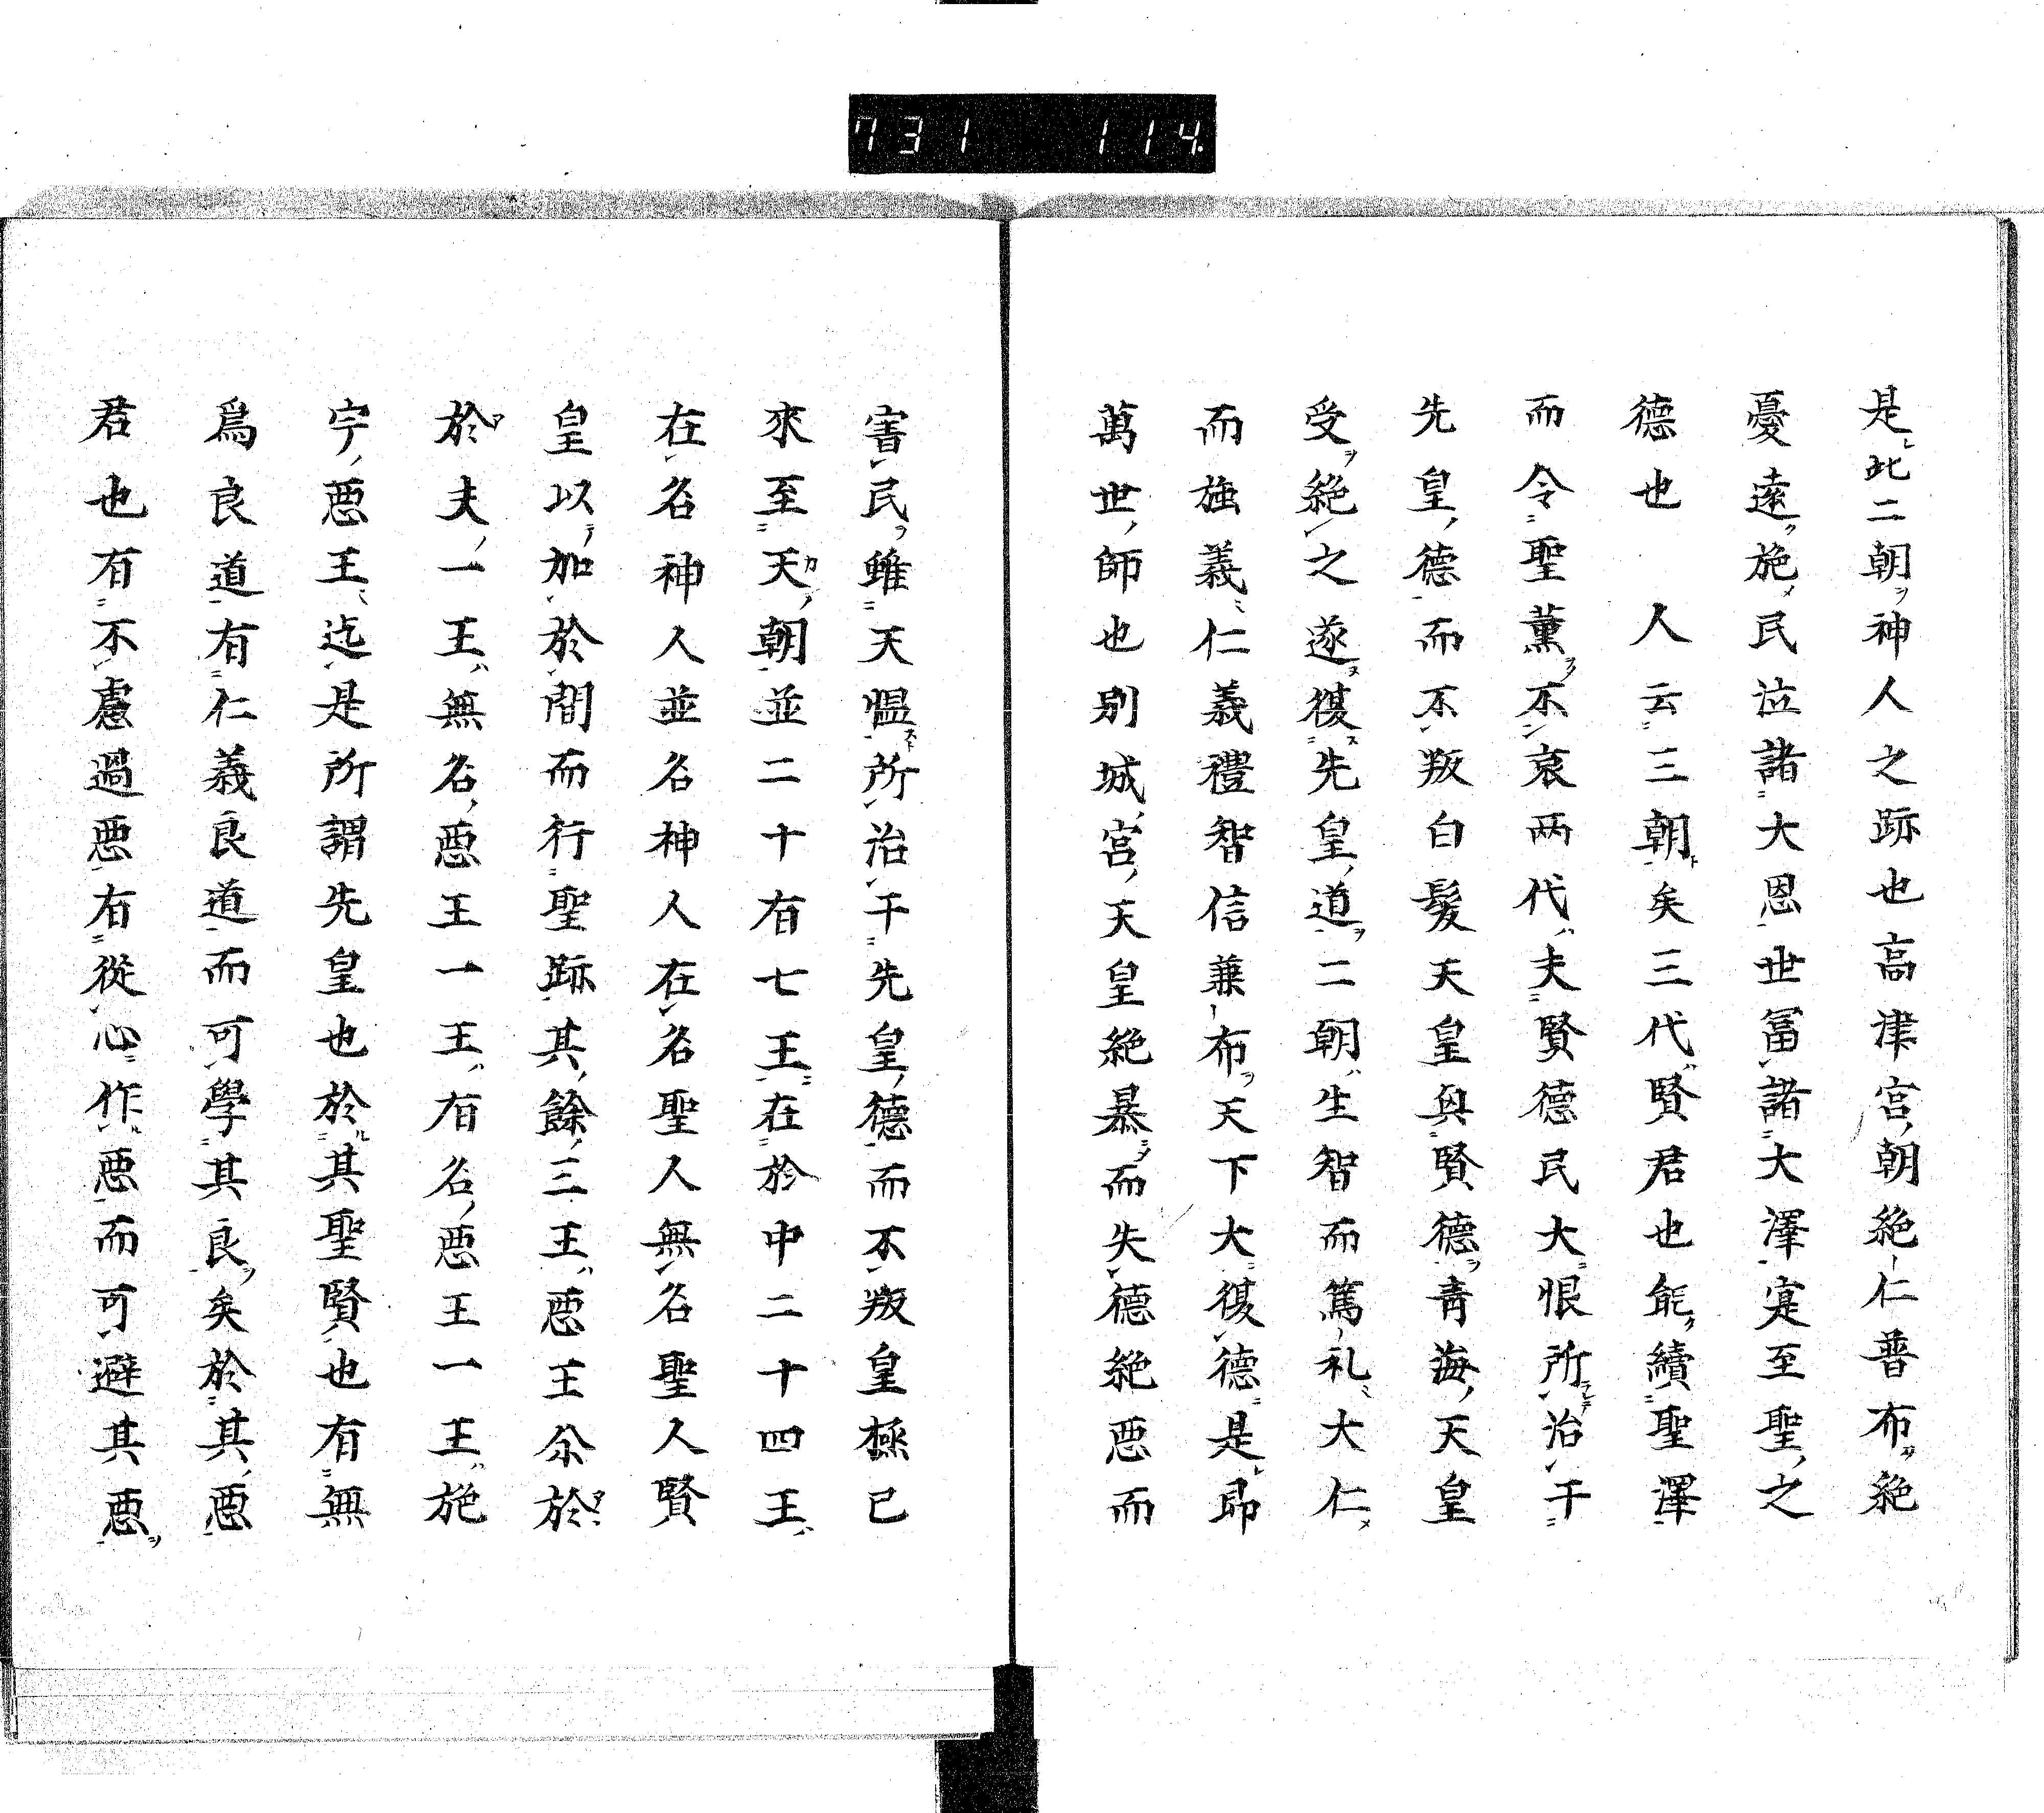 731 114.
是此二朝神人之跡也高津宮朝絶仁普布絶
憂遠施民泣諸大恩世冨諸大澤寔至聖之
德也 人云三朝矣三代賢君也能續聖澤
而令聖薫不哀两代夫賢德民大恨所治干
先皇德而不叛白髮天皇與賢德青海天皇
受絶之遂復先皇道二朝生智而篤礼大仁
而施義仁義禮智信兼布天下大復德是昂
萬世師也別城宮天皇絶暴而失德絶悪而
害民雖天愠所治干先皇德而不叛皇極已
來至天朝並二十有七王在於中二十四王
在名神人並名神人在名聖人無名聖人賢
皇以加於間而行聖跡其餘三王悪王尒於
於夫一王無名悪王一王有名悪王一王施
宇悪王迄是所謂先皇也於其聖賢也有無
爲良道有仁義良道而可學其良矣於其悪
君也有不慮過悪有從心作悪而可避其悪